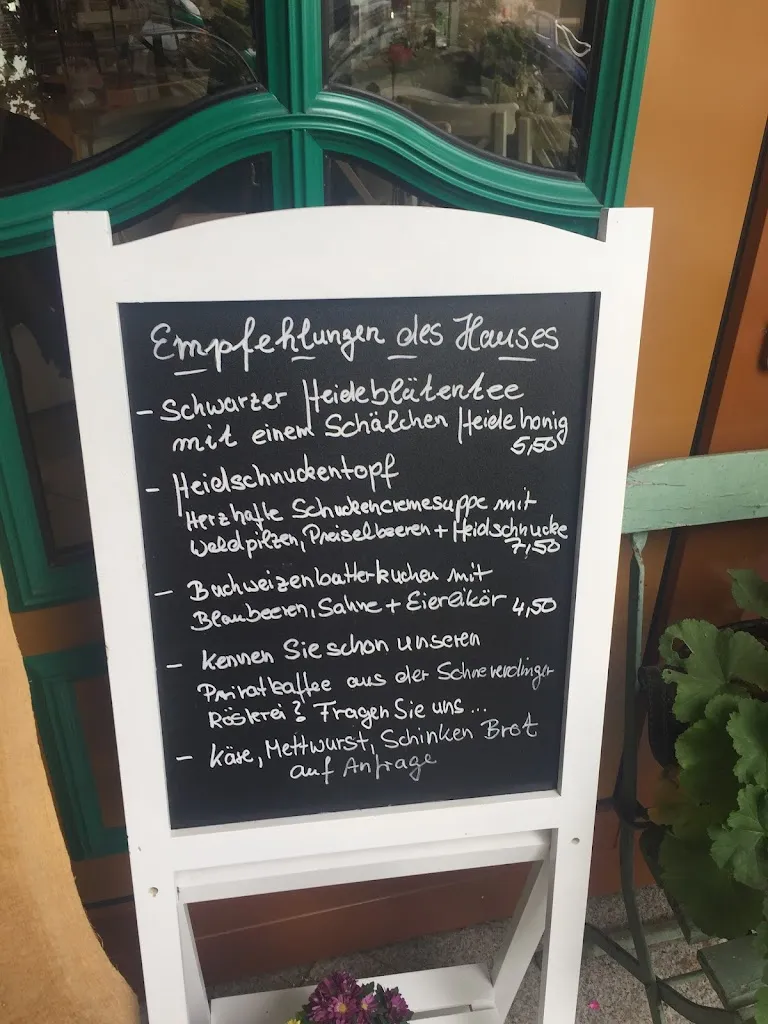 Empfehlungen des Hauses
- Schwarzer Heideblütentee
mit einem Schälchen Heidehonig
5,50
- Heidschnuckentopf
Herzhafte Schnuckencremesuppe mit
Waldpilzen, Preiselbeeren + Heidschnucke
7,50
- Buchweizenbutterkuchen mit
Blaubeeren, Sahne + Eierlikör 4,50
- Kennen Sie schon unseren
Privatkaffee aus der Schneverdinger
Rösterei? Fragen Sie uns ...
- Käse, Mettwurst, Schinken Brot
auf Anfrage